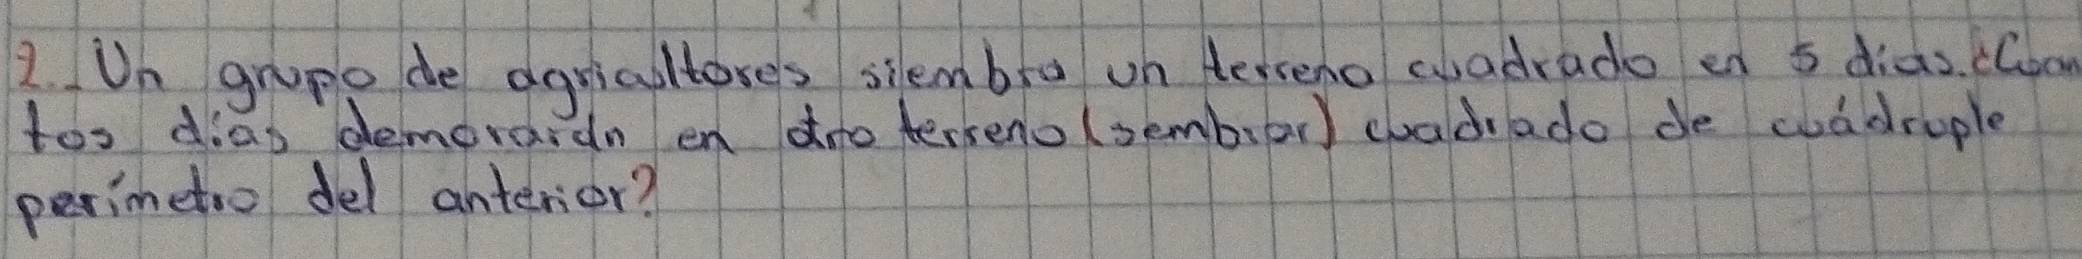 2. Un grupo de agricultores siembra un terreno cuadrado en 5 dias. ¿Cuan
tos dias demorarán en otro terreno (sembrar) cuadrado de cuádruple
perímetro del anterior?